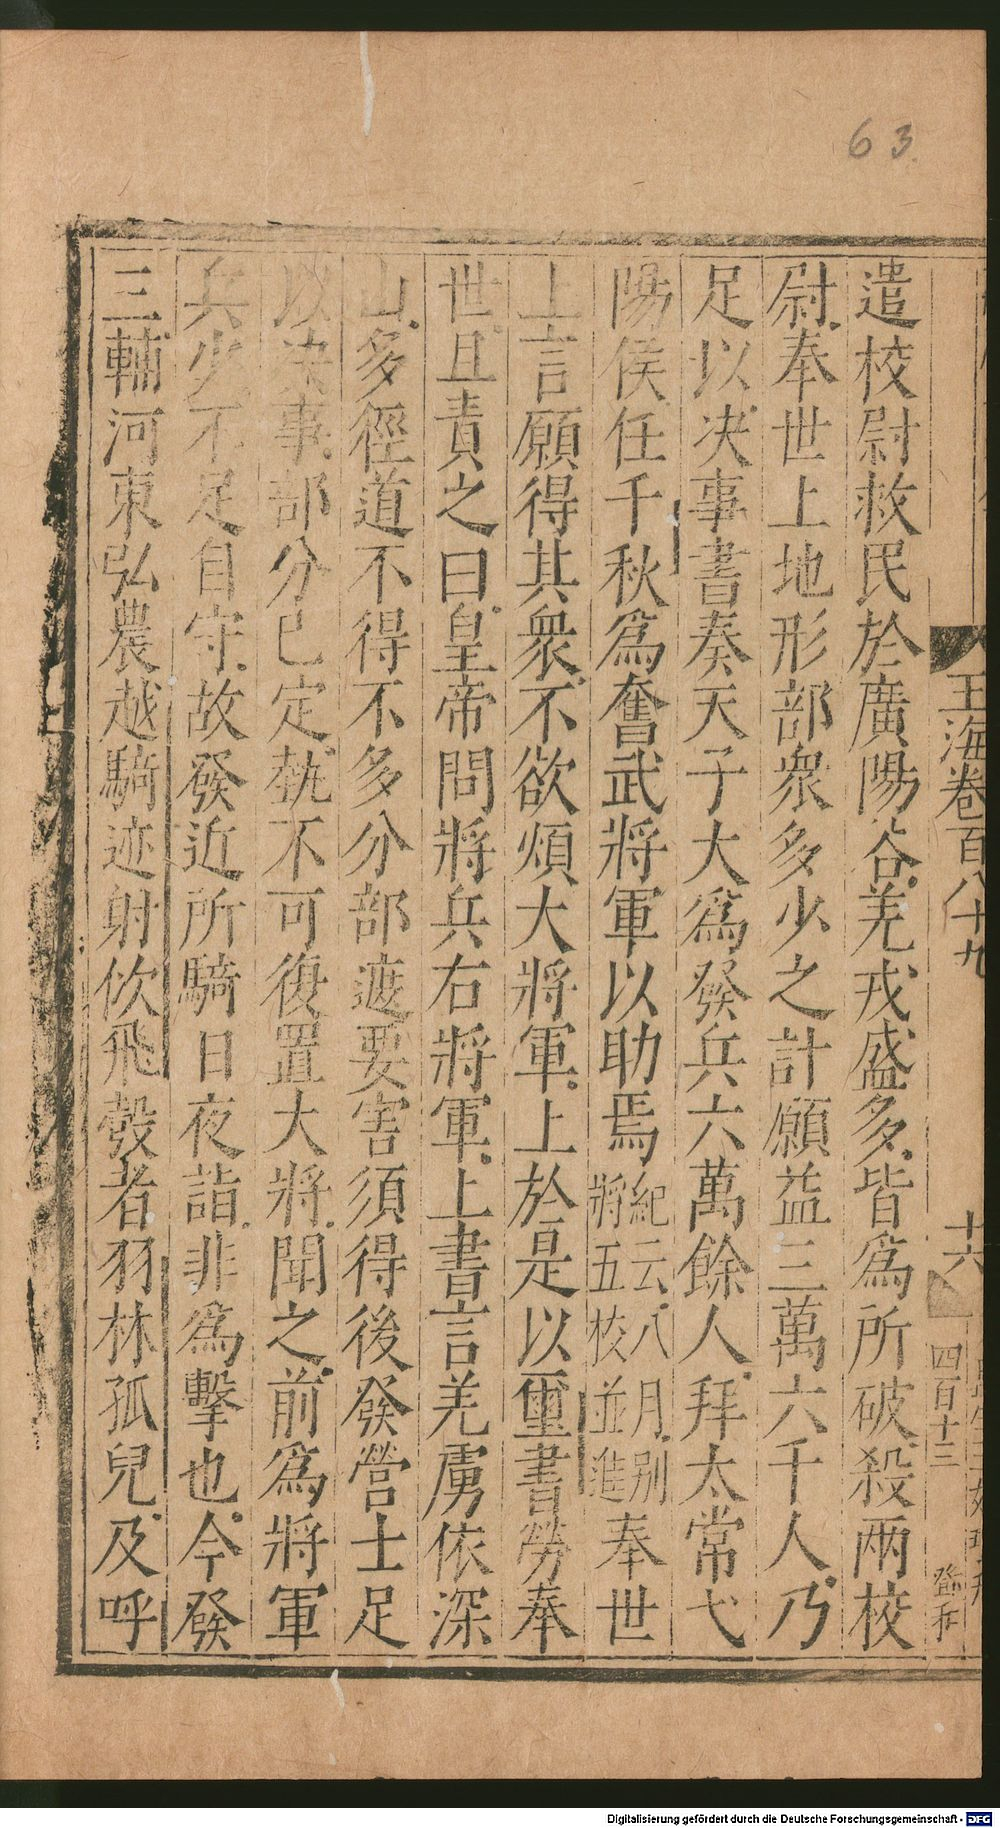 63
玉海卷百八十九
十六
四百十三
遣校尉救民於廣陽谷羌戎盛多皆爲所破殺兩校
尉奉世上地形部衆多少之計願益三萬六千人乃
足以决事書奏天子大爲發兵六萬餘人拜太常弋
陽侯任千秋爲奮武將軍以助焉紀云八月别將五校並進奉世
上言願得其衆不欲煩大將軍上於是以璽書勞奉
世且責之曰皇帝問將兵右將軍上書言羌虜依深
山多徑道不得不多分部遮要害須得後發營士足
以决事部分已定埶不可復置大將聞之前爲將軍
兵少不足自守故發近所騎日夜詣非爲擊也今發
三輔河東弘農越騎迹射佽飛彀者羽林孤兒及呼
Digitalisierung gefördert durch die Deutsche Forschungsgemeinschaft - DFG